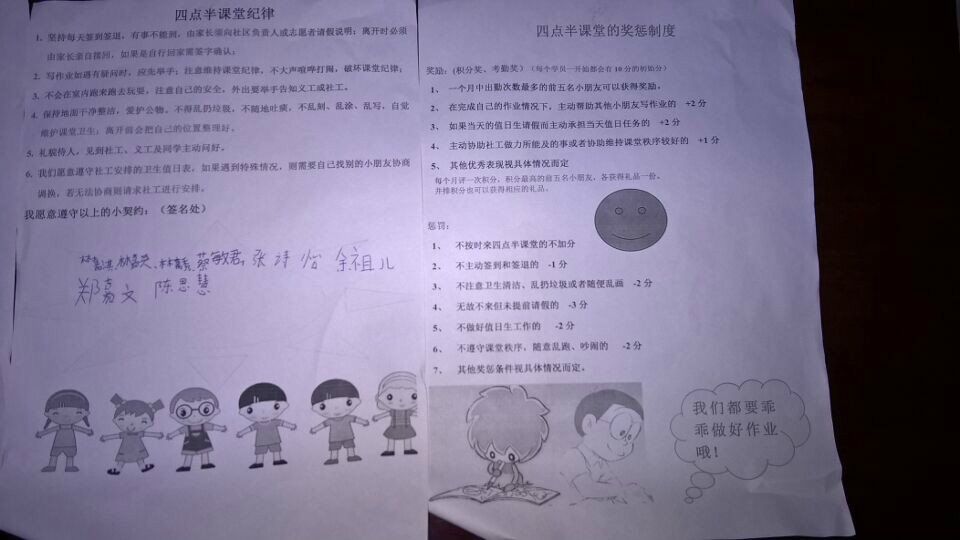 四点半课堂纪律
1. 坚持每天签到签退，有事不能到，由家长须向社区负责人或志愿者请假说明；离开时必须
由家长亲自接回，如果是自行回家需签字确认；
2. 写作业如遇有疑问时，应先举手；注意维持课堂纪律，不大声喧哗打闹，破坏课堂纪律；
3. 不会在室内跑来跑去玩耍，注意自己的安全，外出要举手告知义工或社工。
4. 保持地面干净整洁，爱护公物。不得乱扔垃圾，不随地吐痰，不乱刻、乱涂、乱写，自觉
维护课堂卫生；离开前会把自己的位置整理好。
5. 礼貌待人，见到社工、义工及同学主动问好。
6. 我们愿意遵守社工安排的卫生值日表，如果遇到特殊情况，则需要自己找别的小朋友协商
调换，若无法协商则请求社工进行安排。
我愿意遵守以上的小契约：（签名处）
蔡敏君 张诗怡 余祖儿
郑嘉文 陈思慧
四点半课堂的奖惩制度
奖励：(积分奖、考勤奖)（每个学员一开始都会有 10 分的初始分）
1、 一个月中出勤次数最多的前五名小朋友可以获得奖励。
2、 在完成自己的作业情况下，主动帮助其他小朋友写作业的 +2 分
3、 如果当天的值日生请假而主动承担当天值日任务的 +2 分
4、 主动协助社工做力所能及的事或者协助维持课堂秩序较好的 +1 分
5、 其他优秀表现视具体情况而定
每个月评一次积分，积分最高的前五名小朋友，各获得礼品一份。
并排积分也可以获得相应的礼品。
惩罚：
1、 不按时来四点半课堂的不加分
2、 不主动签到和签退的 -1 分
3、 不注意卫生清洁、乱扔垃圾或者随便乱画 -2 分
4、 无故不来但未提前请假的 -3 分
5、 不做好值日生工作的 -2 分
6、 不遵守课堂秩序，随意乱跑、吵闹的 -2 分
7、 其他奖惩条件视具体情况而定。
我们都要乖
乖做好作业
哦！